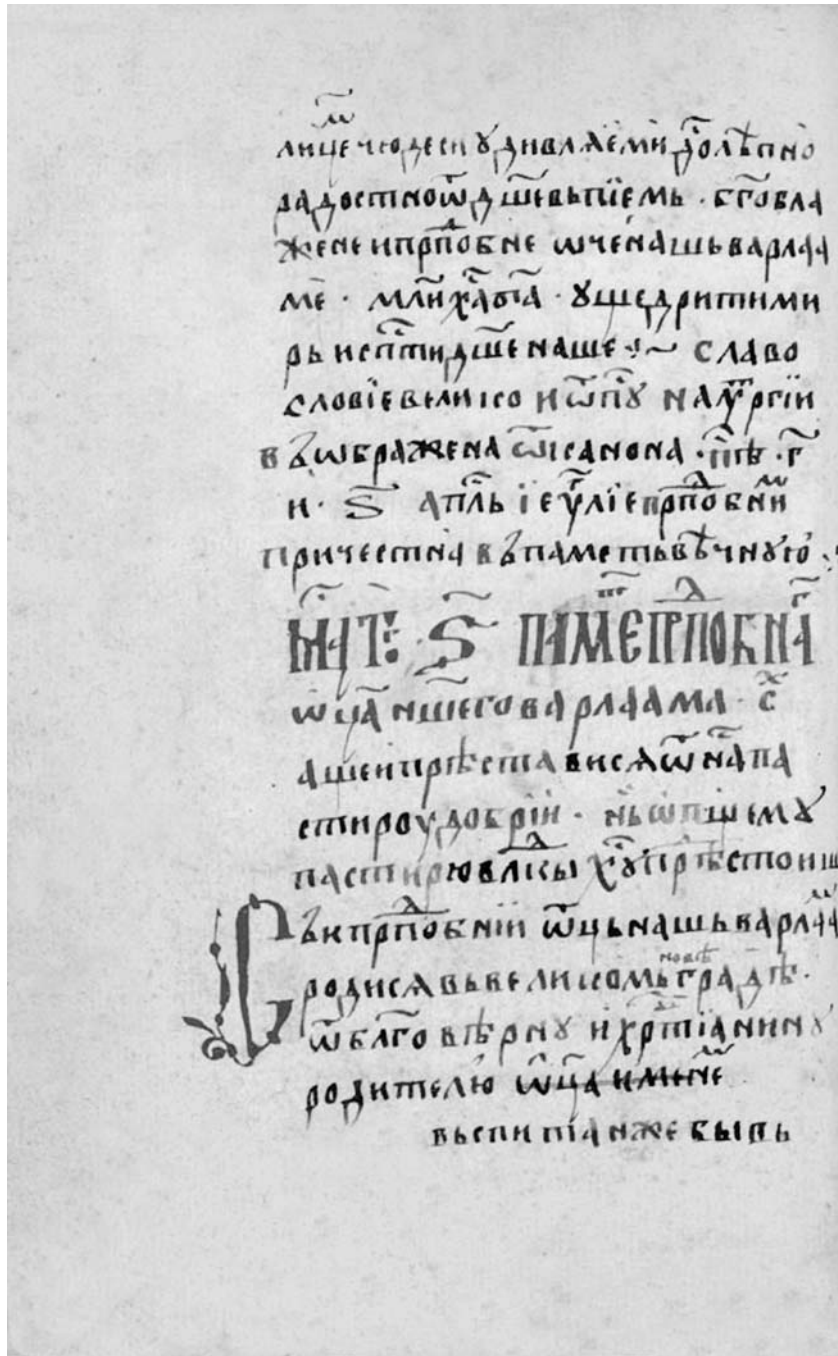 лицеⷨ чюдеси ꙋдивлѧеми дⷭ҇олѣпно
радостною дш҃ею въпїемь · бг҃обла
жене и прпⷣобне ѡ҃че нашь варлаа
ме · мл҃и хⷭ҇а б҃а · ꙋщедрити ми
рь и сп҃сти дш҃е наше :~ славо
словїе велико и ѡ҃пꙋⷭ҇ на лїтⷹргїи
въ ѡбражена ѿ канона · пⷭ҇ѣ · г҃
и · ѕ҃ ап҃ль ї еѵⷢ҇лїе прпⷣобнїиⷨ
причестна въ паметь вѣчнꙋю :
мцⷭ҇а т҃ · ѕ҃ памеⷮ прпⷣобнаⷢ
ѡц҃а нш҃его варлаама · сⷯ
аще и прѣставися ѿ наⷭ па
стироу добрїи · нь ѡпщемꙋ
пастирю влⷣкы хⷭ҇ꙋ прѣстоиш
Съи прпⷣобнїи ѡц҃ь нашь варлааⷨ
родися вь великомь новѣ градѣ ·
ѿ бл҃говѣрнꙋ и хрⷭ҇тїанинꙋ
родителю ѡц҃а именеⷨ
вьспитїан же бывь